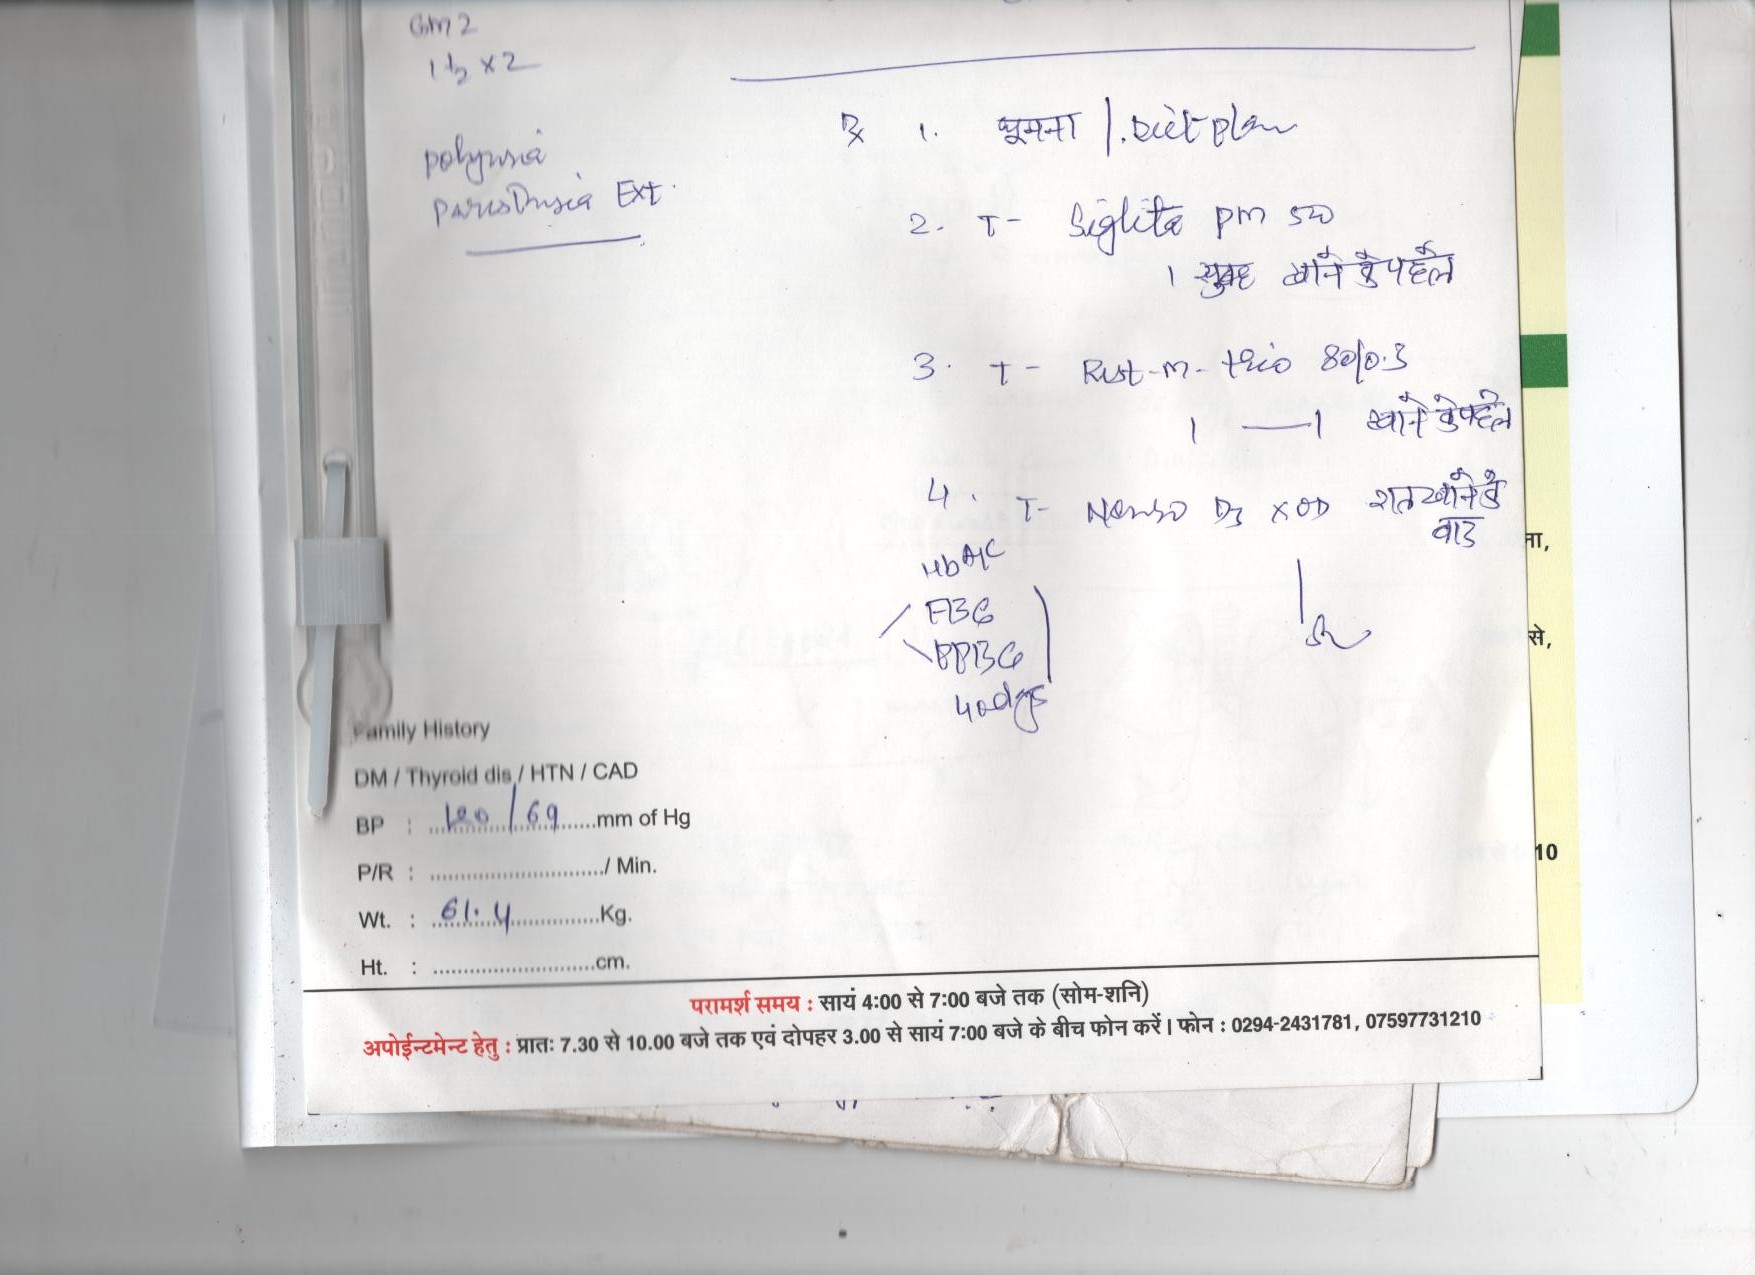 GM2
1 ½ x 2
polyuria
Paresthesia Ext.
Rx 1. घूमना / Diet plan
2. T- Siglita pm 50
1 सुबह खाने के पहले
3. T- Rist-m-trio 80/0.3
1 — 1 खाने के पहले
4. T- D3 x OD रात खाने के
बाद
HbA1C
FBG
PPBG
40 days
Family History
DM / Thyroid dis / HTN / CAD
BP : 120/69 mm of Hg
P/R : / Min.
Wt. : 61.4 Kg.
Ht. : cm.
परामर्श समय : सायं 4:00 से 7:00 बजे तक (सोम-शनि)
अपोईन्टमेन्ट हेतु : प्रातः 7.30 से 10.00 बजे तक एवं दोपहर 3.00 से सायं 7:00 बजे के बीच फोन करें। फोन : 0294-2431781, 07597731210
ना,
से,
10